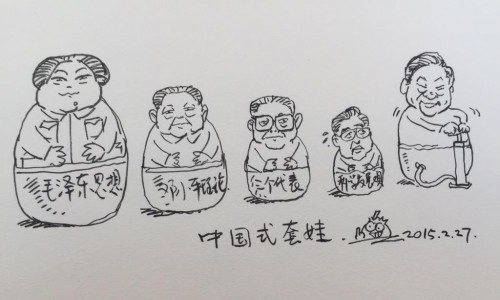 毛泽东思想
邓小平理论
三个代表
科学发展观
中国式套娃. 2015.2.27.